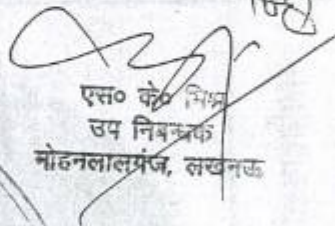 एस० के० मिश्र
उप निबन्धक
मोहनलालगंज, लखनऊ